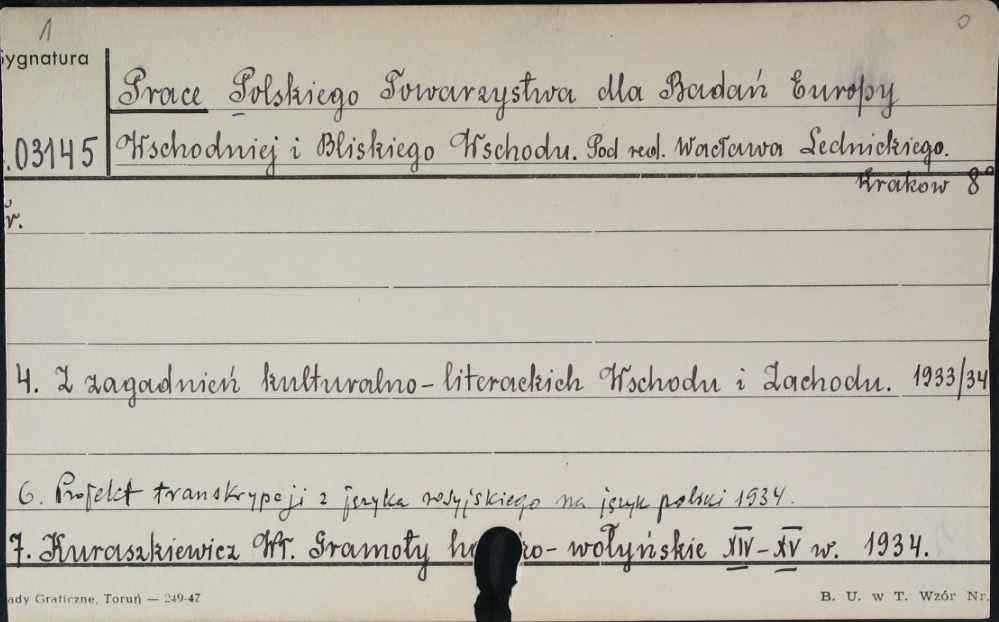 1 0
Sygnatura
Prace Polskiego Towarzystwa dla Badań Europy
.03145 Wschodniej i Bliskiego Wschodu. Pod red. Wacława Lednickiego.
Krakow 8°
r.
4. Z zagadnień kulturalno-literackich Wschodu i Zachodu. 1933/34
6. Projekt transkrypcji z języka rosyjskiego na język polski 1934.
7. Kuraszkiewicz Wł. Gramoty ko- wołyńskie XIV-XV w. 1934.
ady Graficzne, Toruń — 249-47 B. U. w T. Wzór Nr.